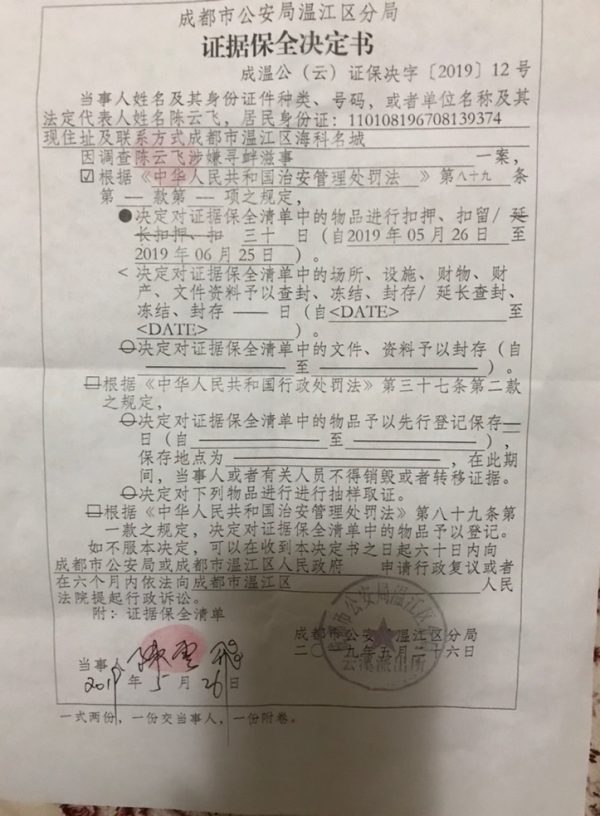 成都市公安局温江区分局
证据保全决定书
成温公（云）证保决字〔2019〕12号
当事人姓名及其身份证件种类、号码，或者单位名称及其
法定代表人姓名陈云飞，居民身份证：110108196708139374
现住址及联系方式成都市温江区海科名城
因调查陈云飞涉嫌寻衅滋事一案，
☑根据《中华人民共和国治安管理处罚法》第八十九条
第一款第一项之规定，
●决定对证据保全清单中的物品进行扣押、扣留/延
长扣押、扣 三十 日（自2019年05月26日 至
2019年06月25日）。
<决定对证据保全清单中的场所、设施、财物、财
产、文件资料予以查封、冻结、封存/延长查封、
冻结、封存——日（自<DATE> 至
<DATE> ）。
○决定对证据保全清单中的文件、资料予以封存（自
至 ）。
□根据《中华人民共和国行政处罚法》第三十七条第二款
之规定，
○决定对证据保全清单中的物品予以先行登记保存
日（自 至 ），
保存地点为 ，在此期
间，当事人或者有关人员不得销毁或者转移证据。
○决定对下列物品进行进行抽样取证。
□根据《中华人民共和国治安管理处罚法》第八十九条第
一款之规定，决定对证据保全清单中的物品予以登记。
如不服本决定，可以在收到本决定书之日起六十日内向
成都市公安局或成都市温江区人民政府 申请行政复议或者
在六个月内依法向成都市温江区 人民
法院提起行政诉讼。
附：证据保全清单
成都市公安局温江区分局
二〇一九年五月二十六日
当事人 陈云飞
2019年5月26日
一式两份，一份交当事人，一份附卷。